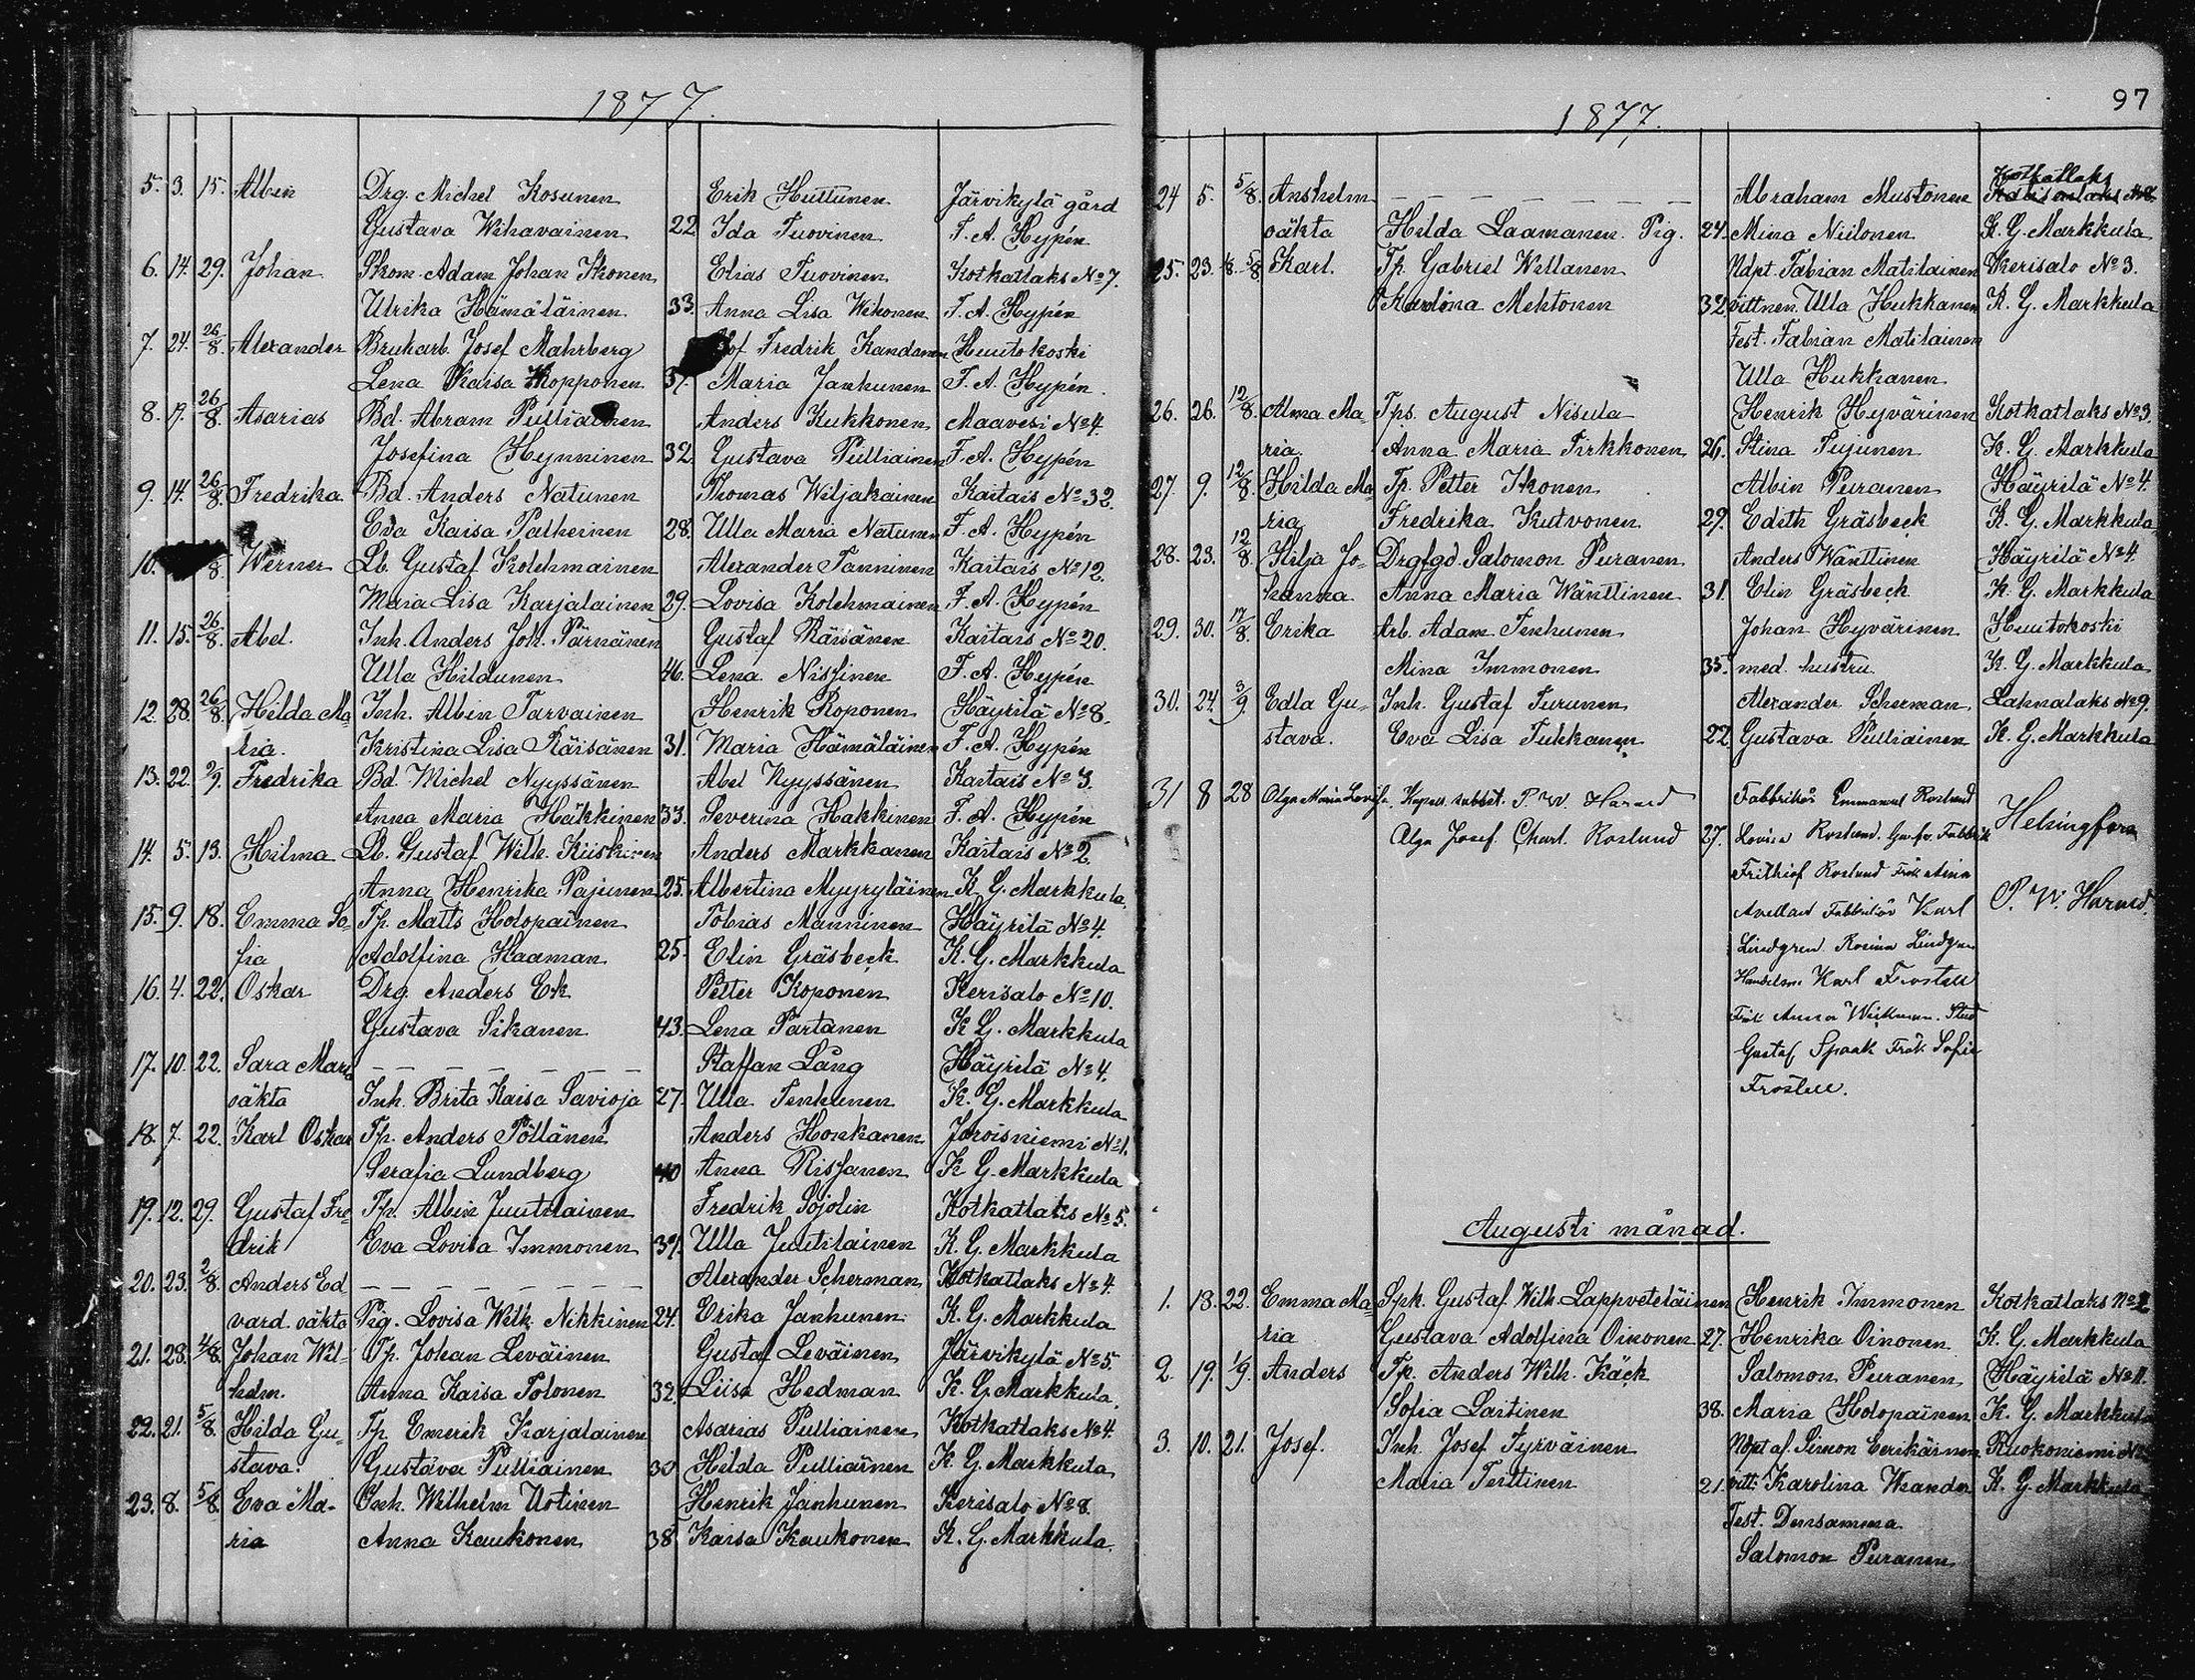 1877.
5. 3. 15. Albin Drg. Michel Kosunen Erik Huttunen Järvikylä gård
Gustava Wihavainen 22 Ida Tuovinen F. A. Hypén
6. 14. 29. Johan Skom. Adam Johan Ikonen Elias Tuovinen Kotkatlaks No 7.
Ulrika Hämäläinen 33. Anna Lisa Wihonen F. A. Hypén
7. 24. 26/8. Alexander Brukarb. Josef Mahrberg Fredrik Kandanen Huutokoski
Lena Kaisa Kopponen 37. Maria Janhunen F. A. Hypén.
8. 17. 26/8. Asarias Bd. Abram Pulliainen Anders Kukkonen Maavesi No 4.
Josefina Hynninen 32. Gustava Pulliainen F. A. Hypén
9. 14. 26/8. Fredrika Bd. Anders Natunen Thomas Wiljakainen Kaitais No 32.
Eva Kaisa Patheinen 28. Ulla Maria Natunen F. A. Hypén
10. 8. Werner Lb. Gustaf Kolehmainen Alexander Tanninen Kaitais No 12.
Maria Lisa Karjalainen 29. Lovisa Kolehmainen F. A. Hypén
11. 15. 26/8. Abel. Inh. Anders Joh. Pärnänen Gustaf Räisänen Kaitais No 20.
Ulla Hildunen 46. Lena Nissinen F. A. Hypén
12. 28. 26/8. Hilda Ma- Inh. Albin Tarvainen Henrik Roponen Häyrilä No 8.
ria. Kristina Lisa Räisänen 31. Maria Hämäläinen F. A. Hypén
13. 22. 2/9. Fredrika Bd. Michel Nyyssänen Abel Nyyssänen Kaitais No 3.
Anna Maria Häkkinen 33. Severina Hakkinen F. A. Hypén
14. 5. 13. Hilma Lb. Gustaf Wilh. Kiiskinen Anders Markkanen Kaitais No 2.
Anna Henrika Pajunen 25. Albertina Myyryläinen K. G. Markkula.
15. 9. 18. Emma So- Tp. Matts Holopainen Tobias Manninen Häyrilä No 4.
fia Adolfina Haaman 25. Elin Gräsbeck K. G. Markkula
16. 4. 22. Oskar Drg. Anders Ek Petter Koponen Kerisalo No 10.
Gustava Sikanen 43. Lena Partanen K. G. Markkula
17. 10. 22. Sara Maria — — — — — — Staffan Lång Häyrilä No 4.
oäkta Inh. Brita Kaisa Savioja 27. Ulla Tenhunen K. G. Markkula
18. 7. 22. Karl Oskar Tp. Anders Pöllänen Anders Honkanen Joroisniemi No 1.
Serafia Lundberg 40 Anna Rissanen K. G. Markkula
19. 12. 29. Gustaf Fre- Tp. Albin Juutilainen Fredrik Sojolin Kotkatlaks No 5.
drik Eva Lovisa Immonen 37. Ulla Juutilainen K. G. Markkula
20. 23. 2/8. Anders Ed — — — — — — Alexander Scherman Kotkatlaks No 4.
vard. oäkta Pig. Lovisa Wilh. Nikkinen 24. Erika Janhunen K. G. Markkula
21. 28. 4/8. Johan Wil- Tp. Johan Leväinen Gustaf Leväinen Järvikylä No 5.
helm. Anna Kaisa Tolonen 32. Liisa Hedman K. G. Markkula.
22. 21. 5/8. Hilda Gu- Tp. Emerik Karjalainen Asarias Pulliainen Kotkatlaks No 4.
stava. Gustava Pulliainen 30 Hilda Pulliainen K. G. Markkula
23. 8. 5/8. Eva Ma- Inh. Wilhelm Uotinen Henrik Janhunen Kerisalo No 8.
ria Anna Kaukonen 38 Kaisa Kaukonen K. G. Markkula.
97
1877.
Kotkatlaks
24 5. 5/8. Anshelm — — — — — — Abraham Mustonen
oäkta Hilda Laamanen. Pig. 24. Mina Niilonen K. G. Markkula
25. 23. 5/8 Karl. Tp. Gabriel Willanen Ndpt. Fabian Matilainen Kerisalo No 3.
Karolina Mehtonen 32. vittnen. Ulla Hukkanen K. G. Markkula
Test. Fabian Matilainen
Ulla Hukkanen
26. 26. 12/8. Alma Ma- Tps. August Nisula Henrik Hyvärinen Kotkatlaks No 3.
ria. Anna Maria Pirkkonen 26. Stina Pujunen K. G. Markkula
27. 9. 12/8. Hilda Ma- Tp. Petter Ikonen Albin Puranen Häyrilä No 4.
ria Fredrika Kutvonen 29. Edith Gräsbeck K. G. Markkula
28. 23. 12/8. Hilja Jo- Drgfgd. Salomon Puranen Anders Wänttinen Häyrilä No 4.
hanna. Anna Maria Wänttinen 31. Elin Gräsbeck K. G. Markkula
29. 30. 17/8. Erika Arb. Adam Tenhunen Johan Hyvärinen Huutokoski
Mina Immonen 35. med hustru K. G. Markkula
30. 24. 3/9. Edla Gu- Inh. Gustaf Turunen Alexander Scherman. Lahnalaks No 9.
stava. Eva Lisa Tukkanen 22. Gustava Pulliainen K. G. Markkula
31 8 28 Olga Maria Lovisa. Kapell. subst. P. W. Harnd Fabbrikör Emmanuel Roslund Helsingfors
Olga Josef. Charl. Roslund 27. Lovisa Roslund.
Frithiof Roslund Frök. Mina
Avellan Fabbrikör Karl P. W. Harnd.
Lindgren Rosina Lindgren
Handelsm. Karl Frostell
Frök Anna Wickman. Stud
Gustaf Spaak Frök. Sofie
Frostell.
Augusti månad.
1. 18. 22. Emma Ma- Spk. Gustaf Wilh. Lappveteläinen Henrik Immonen Kotkatlaks No 2
ria Gustava Adolfina Oinonen 27. Henrika Oinonen. K. G. Markkula
2. 19. 1/9. Anders Tp. Anders Wilh. Käck Salomon Puranen Häyrilä No 11.
Sofia Laitinen 38. Maria Holopainen K. G. Markkula
3. 10. 21. Josef. Inh. Josef Tyrväinen Ndpt af. Simon Eerikäinen Ruokoniemi No
Maria Terttinen 21. vitt. Karolina K. G. Markkula
Test. Densamma
Salomon Puranen